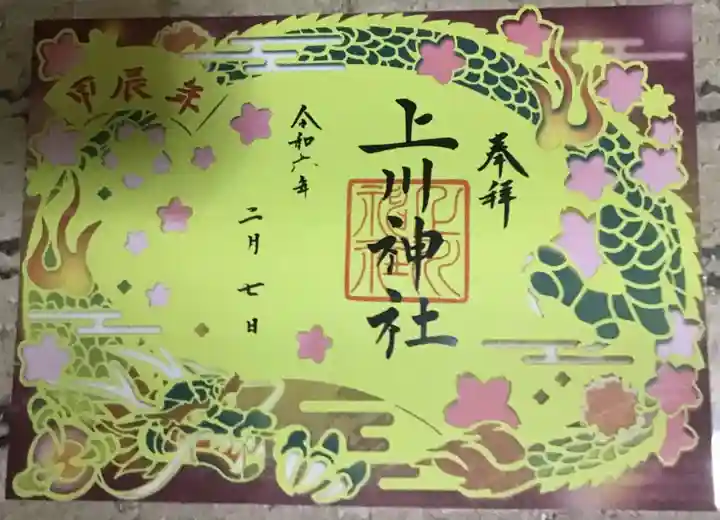 奉拝
上川神社
令和六年
二月七日
甲辰年